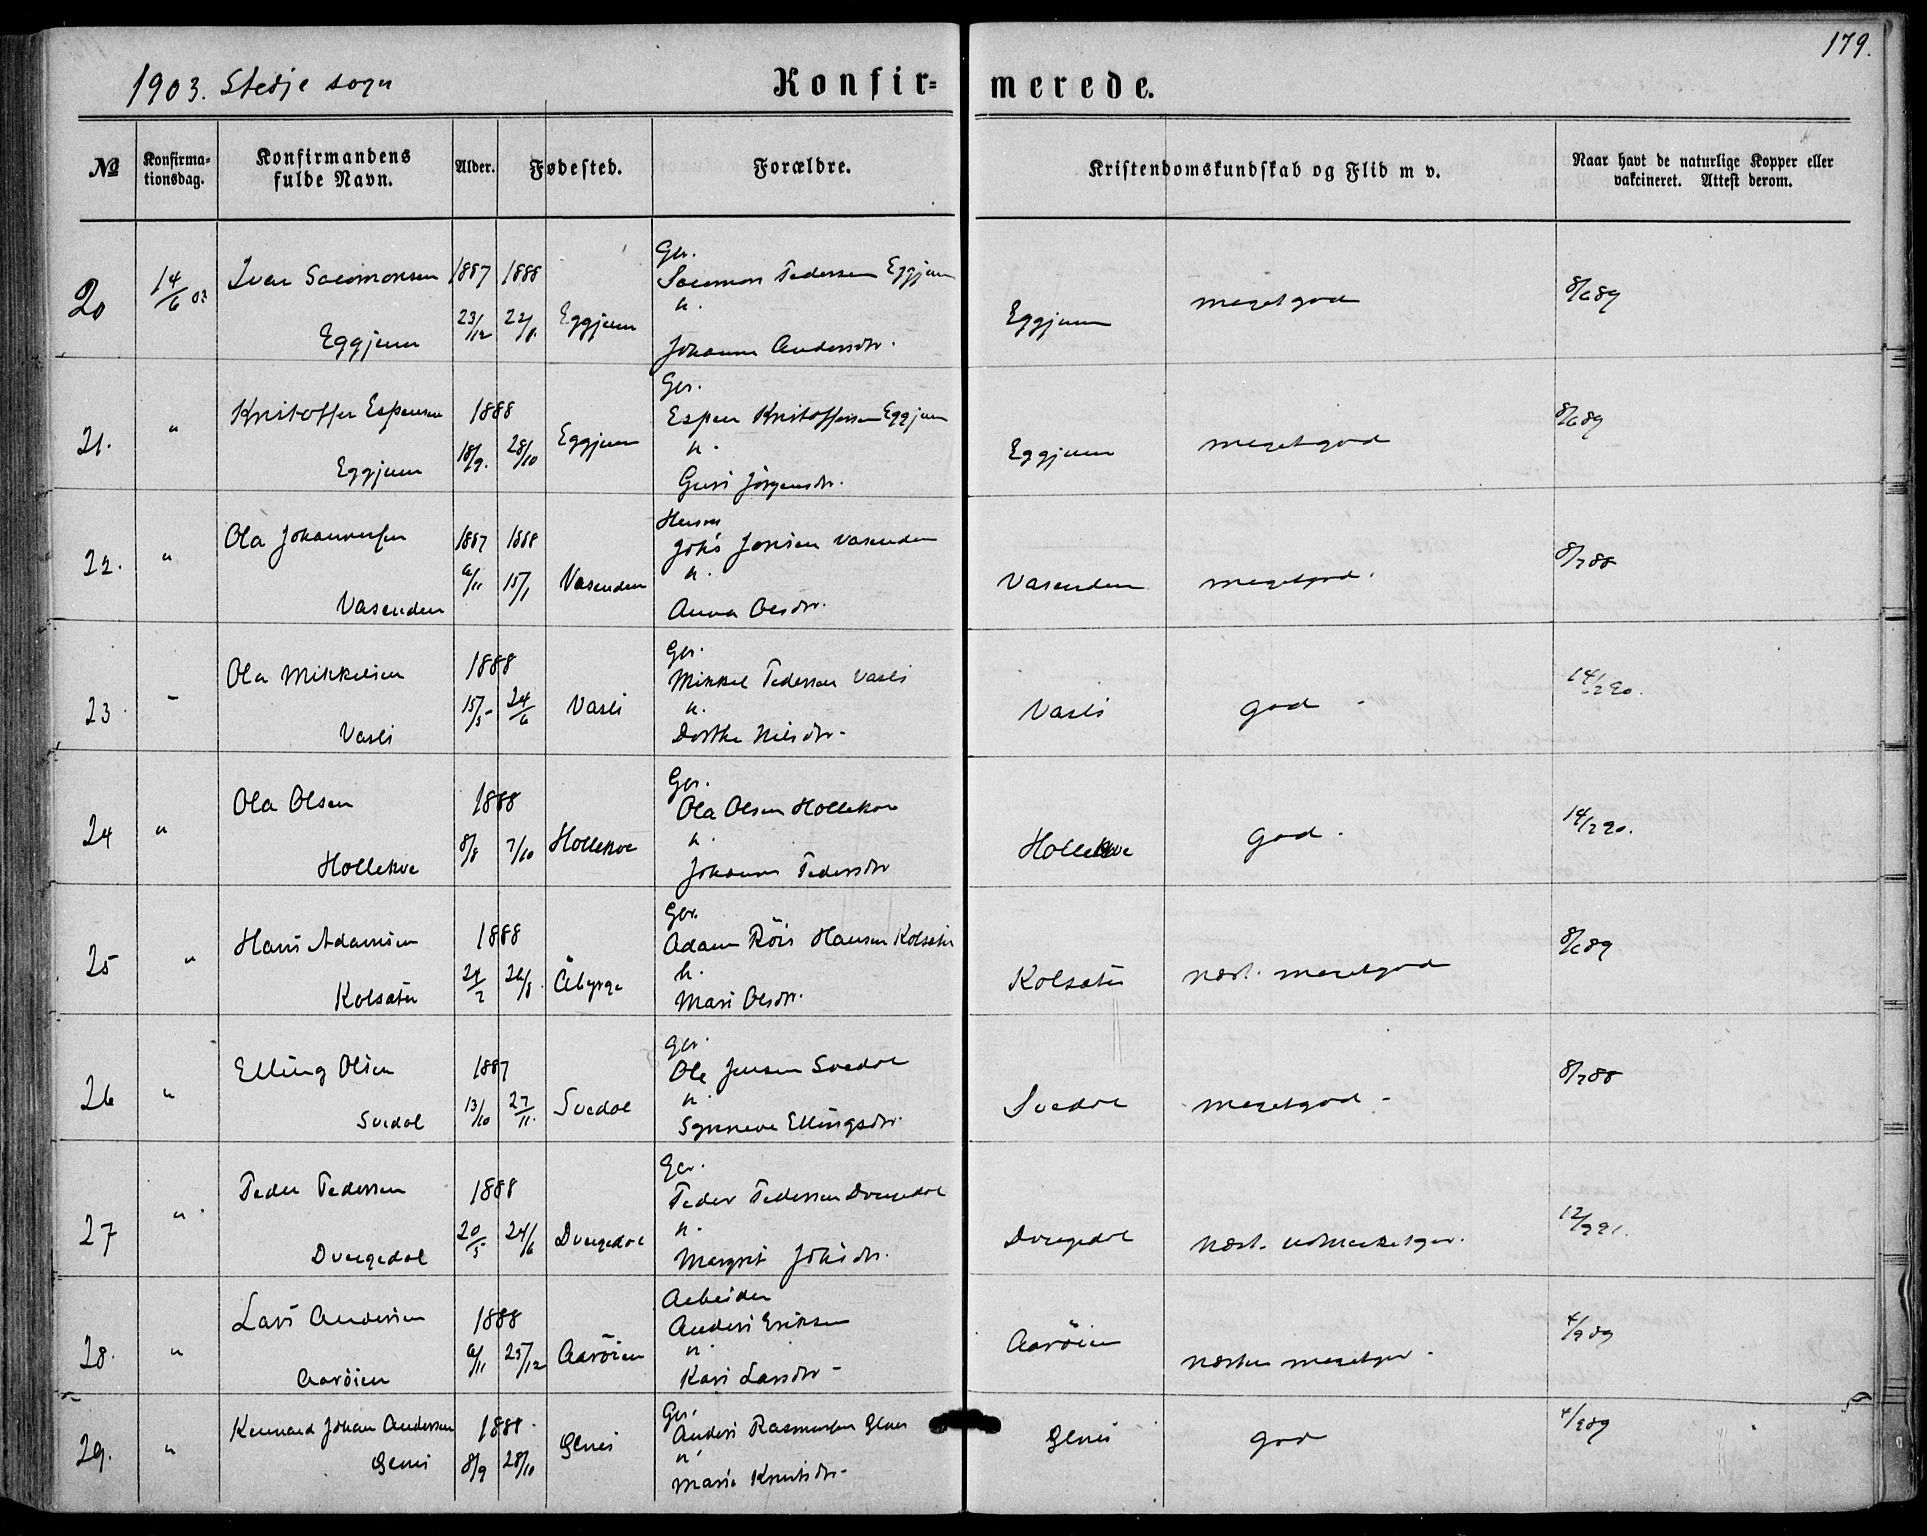 179.
1903. Stedje sogn
Konfir- merede.
No
Konfirma-
tionsdag.
Konfirmandens
fulde Navn.
Alder.
Fødested.
Forældre.
Kristendomskundskab og Flid m v.
Naar havt de naturlige Kopper eller
vakcineret. Attest derom.
20 14/6 03 Ivar Salomonsen 1887 1888
Eggjum 23/12 22/1. Eggjum
Gbr.
Salomon Pedersen Eggjum
h.
Johanna Andersdtr.
Eggjum megetgod 8/6 89
21. " Kristoffer Espensen 1888
Eggjum 18/9. 28/10 Eggjum
Gbr.
Espen Kristoffersen Eggjum
h.
Guri Jörgensdtr.
Eggjum megetgod 8/6 89
22. " Ola Johannesen 1887 1888
Vasenden 6/11 15/1 Vasenden
Husm
Johs Jonsen Vasenden
h.
Anna Olsdtr.
Vasenden megetgod. 8/7 88
23 - Ola Mikkelsen 1888
Vasli 15/5- 24/6 Vasli
Gbr.
Mikkel Pedersen Vasli
h.
Dorthe Nilsdtr-
Vasli god - 14/2 90.
24 " Ola Olsen 1888
Hollekve 8/8 7/10 Hollekve
Gbr.
Ola Olsen Hollekve
h.
Johanna Pedersdtr
Hollekve god. 14/2 90.
25 " Hans Adamsen 1888
Kolsæter 24/7 26/8. Åbyrge
Gbr.
Adam Röis Hansen Kolsæter
h.
Mari Olsdtr.
Kolsæter næst. megetgod 8/6 89
26 " Elling Olsen 1887
Svedal 13/10 27/11. Svedal
Gbr.
Ole Jensen Svedal
h.
Synneve Ellingsdtr.
Svedal megetgod - 8/7 88
27 " Peder Pedersen 1888
Dvergedal 20/5 24/6 Dvergedal
Gbr.
Peder Pedersen Dvergedal
h.
Margrit Johsdtr.
Dvergedal næst. udmerketgod. 12/9 91.
28. " Lars Andersen 1888
Aaröien 6/11 25/12 Aaröien
Arbeider
Anders Eriksen
h.
Kari Larsdtr -
Aaröien næsten megetgod - 4/9 89
29. " Johan Andersen 1888.
8/9 28/10
Gbr.
Anders Rasmussen
h
Marie Knutsdtr-
god 4/9 89